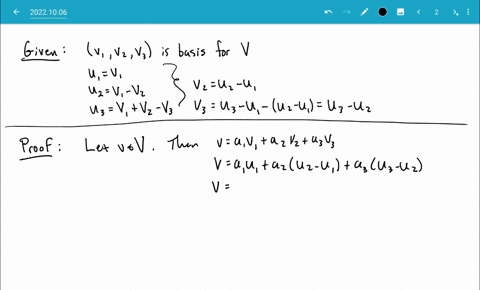 2022.10.06
2
Given: (v₁, v₂, v₃) is basis for V
u₁=v₁
u₂=v₁-v₂
v₂=u₂-u₁
u₃=v₁+v₂-v₃
v₃=u₃-u₁-(u₂-u₁)=u₃-u₂
Proof: Let v∈V. Then v=a₁v₁+a₂v₂+a₃v₃
v=a₁u₁+a₂(u₂-u₁)+a₃(u₃-u₂)
v=